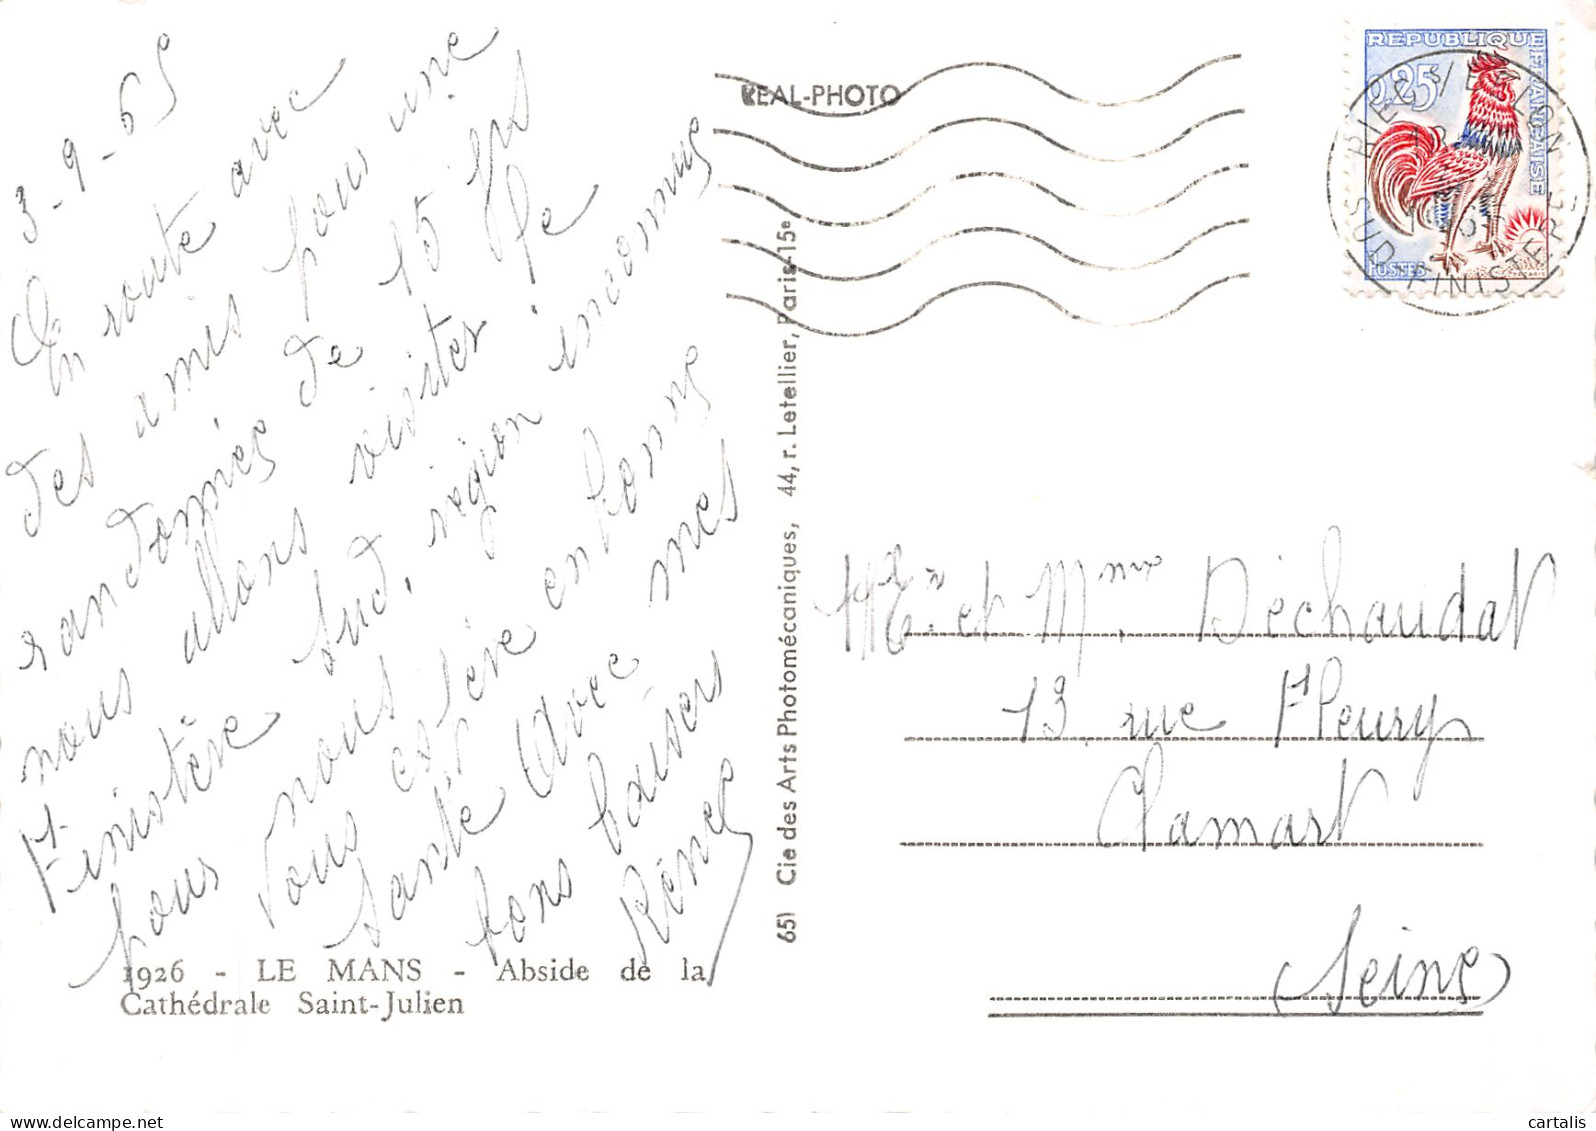 3-9-65
En route avec
des amis pour une
randonnée de 15 jrs
nous allons visiter le
Finistère Sud, région inconnue
pour nous
Vous est sère en bonne
santé Avec mes
bons baisers
Rénée
1926 - LE MANS - Abside de la
Cathédrale Saint-Julien
651 Cie des Arts Photomécaniques, 44, r. Letellier, Paris-15e
REAL-PHOTO
REPUBLIQUE FRANCAISE
0,25
POSTES
RIEC S/ BELON
SUD FINISTERE
et Mme Déchaudat
13 rue Fleury
Clamart
(Seine)
delcampe.net
cartalis